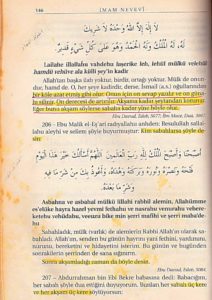 146
İMAM NEVEVÎ
لَا إِلٰهَ إِلَّا اللهُ وَحْدَهُ لَا شَرِيكَ
لَهُ، لَهُ الْمُلْكُ وَلَهُ الْحَمْدُ وَهُوَ عَلَى كُلِّ شَيْءٍ قَدِيرٌ
Lailahe illallahu vahdehu la şerike leh, lehül mülkü velehül
hamdü vehüve ala külli şey'in kadir
Allah'tan başka ilah yoktur, birdir, ortağı yoktur. Mülk de onun-
dur, hamd de. O, her şeye kadirdir, derse, İsmail (a.s.) oğullarından
bir köle azat etmiş gibi olur. Onun için on sevap yazılır ve on günahı
silinir. On derecesi de artırılır. Akşama kadar şeytandan korunur.
Eğer bunu akşam söylerse sabaha kadar yine böyle olur.
Ebu Davud, Edeb,
206 – Ebu Malik el-Eş'ari radıyallahu anhden: Resulullah sallal-
lahu aleyhi ve sellem şöyle buyurmuştur: Kim sabahlarsa şöyle de-
sin:
أَصْبَحْنَا وَأَصْبَحَ الْمُلْكُ لِلّٰهِ رَبِّ الْعَالَمِينَ، اَللّٰهُمَّ إِنِّي أَسْأَلُكَ خَيْرَ هٰذَا الْيَوْمِ
Asbahna ve asbahal mülkü lillahi rabbil alemin, Allahümme inni
es'elüke hayra hazel yevmi fethahu ve nasrahu ve nurahu ve bere-
ketehu vehüdahu, veeuzu bike min şerri mafihi ve şerri ma'bade-
hu
Sabahladık, mülk (varlık) de alemlerin Rabbi Allah'ın olarak sabah-
ladı. Allah'ım, senden bu günün hayrını yani fethini, yardımını,
nurunu, bereketini ve hidayetini isterim. Bu günün ve bugünden
sonrakilerin şerrinden de sana sığınırım.
Sonra akşamladığı zaman da böyle desin.
Ebu Davud, Edeb,
207 – Abdurrahman bin Ebi Bekre babasına dedi: Babacığım,
her sabah şöyle dua ettiğini duyuyorum. Bunları her sabah üç kere
ve her akşam üç kere söylüyorsun: